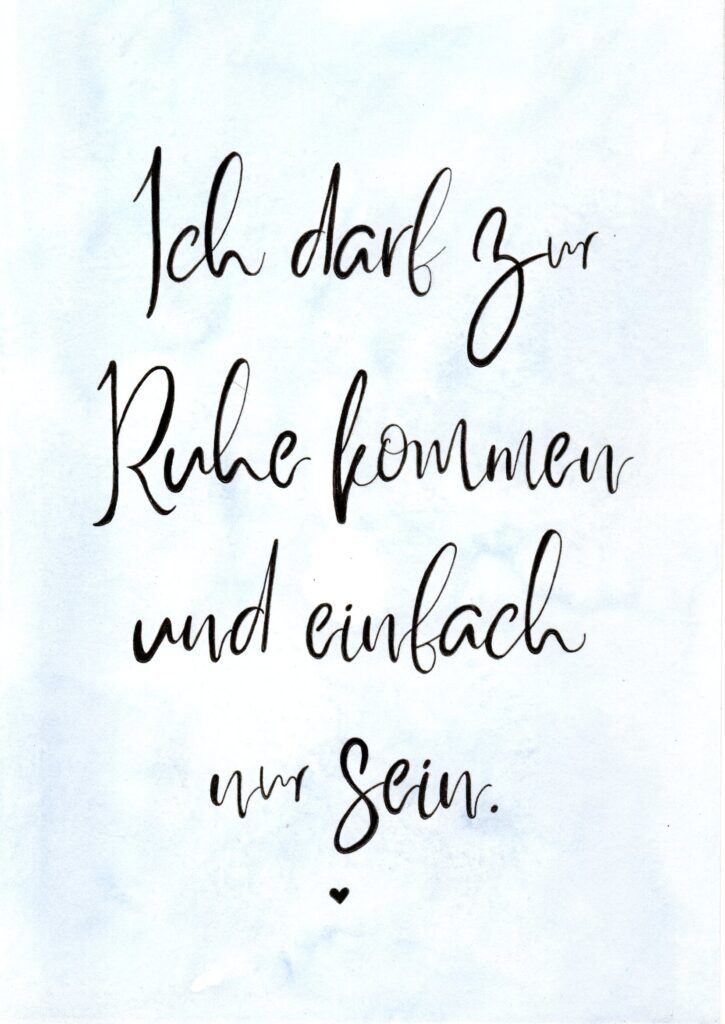 Ich darf zur
Ruhe kommen
und einfach
nur sein.